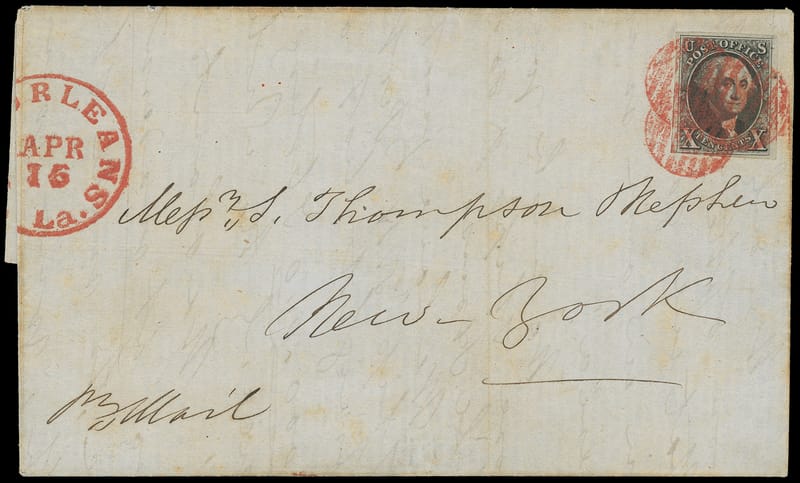 U S
POST OFFICE
X TEN CENTS X
ORLEANS
APR
15
La.
Messrs. S. Thompson & Nephew
New-York
pr Mail